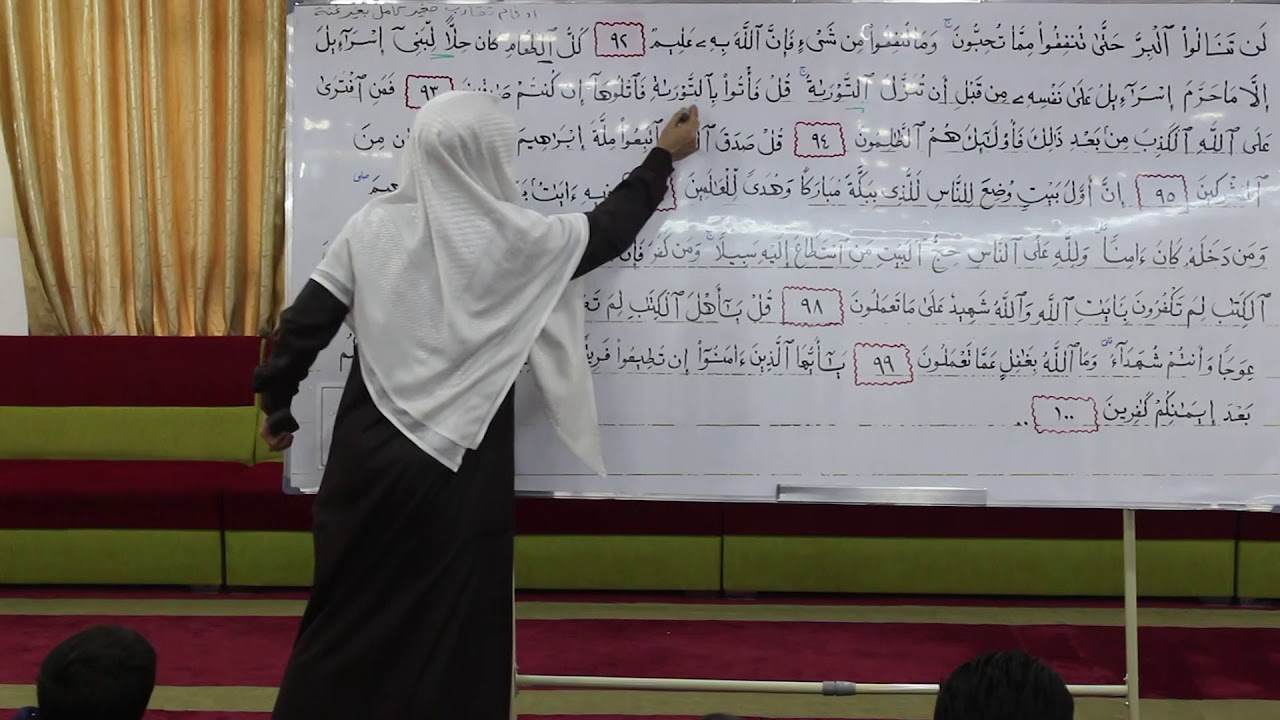 ادغام تقارب صغير كامل بغير غنة
لَن تَنَالُوا۟ ٱلْبِرَّ حَتَّىٰ تُنفِقُوا۟ مِمَّا تُحِبُّونَ ۚ وَمَا تُنفِقُوا۟ مِن شَىْءٍ فَإِنَّ ٱللَّهَ بِهِۦ عَلِيمٌ ٩٢ كُلُّ ٱلطَّعَامِ كَانَ حِلًّا لِّبَنِىٓ إِسْرَٰٓءِيلَ
إِلَّا مَا حَرَّمَ إِسْرَٰٓءِيلُ عَلَىٰ نَفْسِهِۦ مِن قَبْلِ أَن تُنَزَّلَ ٱلتَّوْرَىٰةُ ۚ قُلْ فَأْتُوا۟ بِٱلتَّوْرَىٰةِ فَٱتْلُوهَآ إِن كُنتُمْ ٩٣ فَمَنِ ٱفْتَرَىٰ
عَلَى ٱللَّهِ ٱلْكَذِبَ مِنۢ بَعْدِ ذَٰلِكَ فَأُو۟لَٰٓئِكَ هُمُ ٱلظَّٰلِمُونَ ٩٤ قُلْ صَدَقَ ٱتَّبِعُوا۟ مِلَّةَ إِبْرَٰهِيمَ مِنَ
ٱلْمُشْرِكِينَ ٩٥ إِنَّ أَوَّلَ بَيْتٍ وُضِعَ لِلنَّاسِ لَلَّذِى بِبَكَّةَ مُبَارَكًا وَهُدًى لِّلْعَٰلَمِينَ فِيهِ ءَايَٰتٌۢ
وَمَن دَخَلَهُۥ كَانَ ءَامِنًا ۗ وَلِلَّهِ عَلَى ٱلنَّاسِ حِجُّ ٱلْبَيْتِ مَنِ ٱسْتَطَاعَ إِلَيْهِ سَبِيلًا ۚ وَمَن كَفَرَ فَإِنَّ
ٱلْكِتَٰبِ لِمَ تَكْفُرُونَ بِـَٔايَٰتِ ٱللَّهِ وَٱللَّهُ شَهِيدٌ عَلَىٰ مَا تَعْمَلُونَ ٩٨ قُلْ يَٰٓأَهْلَ ٱلْكِتَٰبِ لِمَ
عِوَجًا وَأَنتُمْ شُهَدَآءُ ۗ وَمَا ٱللَّهُ بِغَٰفِلٍ عَمَّا تَعْمَلُونَ ٩٩ يَٰٓأَيُّهَا ٱلَّذِينَ ءَامَنُوٓا۟ إِن تُطِيعُوا۟
بَعْدَ إِيمَٰنِكُمْ كَٰفِرِينَ ١٠٠